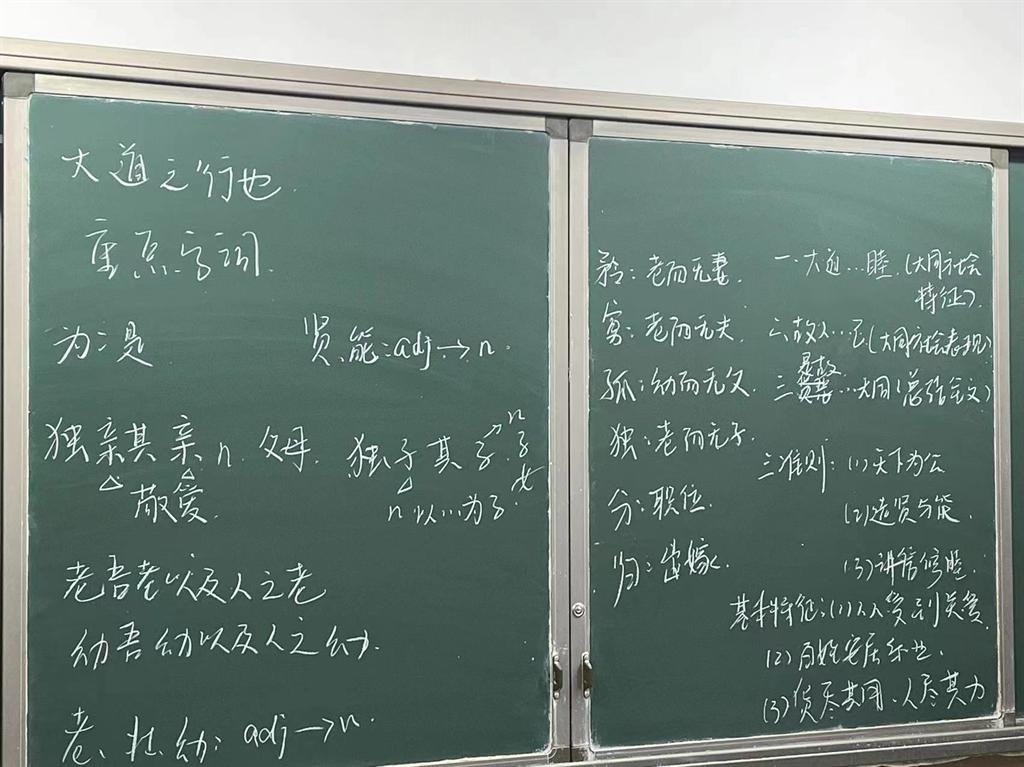 大道之行也.
重点字词.
为:是.
贤、能:adj→n.
独亲其亲 n. 父母.
敬爱.
独子其子→n.子女
n以…为子
老吾老以及人之老
幼吾幼以及人之幼.
老、壮、幼: adj→n.
矜:老而无妻.
寡:老而无夫.
孤:幼而无父.
独:老而无子.
分:职位.
归:出嫁.
一.大道…睦.(大同社会
特征).
二.故人…己(大同社会表现)
三 是故…大同(总结全文)
三准则:(1)天下为公
(2)选贤与能.
(3)讲信修睦.
基本特征:(1)人人受到关爱.
(2)百姓安居乐业.
(3)货尽其用、人尽其力